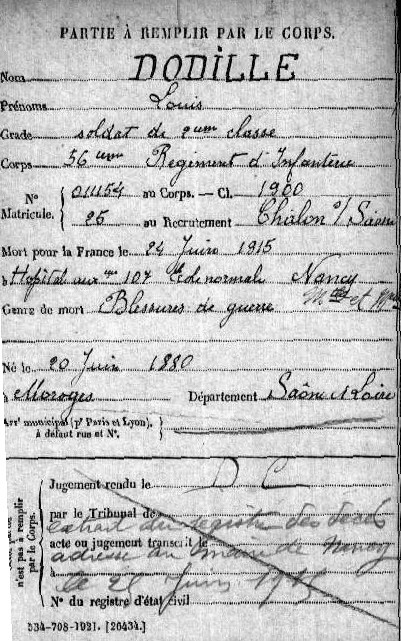 PARTIE À REMPLIR PAR LE CORPS.
Nom DODILLE
Prénoms Louis
Grade soldat de 2eme classe
Corps 56eme Régiment d'Infanterie
No Matricule. 011154 au Corps. — Cl. 1900
25 au Recrutement Chalon s/ Saône
Mort pour la France le 24 Juin 1915
à Hopital aux re 107 Ecle normale Nancy
Mthe et Mlle
Genre de mort Blessures de guerre
Né le 20 Juin 1880
à Moroges Département Saône et Loire
Arrt municipal (pr Paris et Lyon),
à défaut rue et No.
n'est pas à remplir par le Corps.
Jugement rendu le D C
par le Tribunal de
extrait du registre des décès
acte ou jugement transcrit le
adressé au maire de Nancy
à
le 25 Juin 1915
No du registre d'état civil
534-708-1921. [26434.]